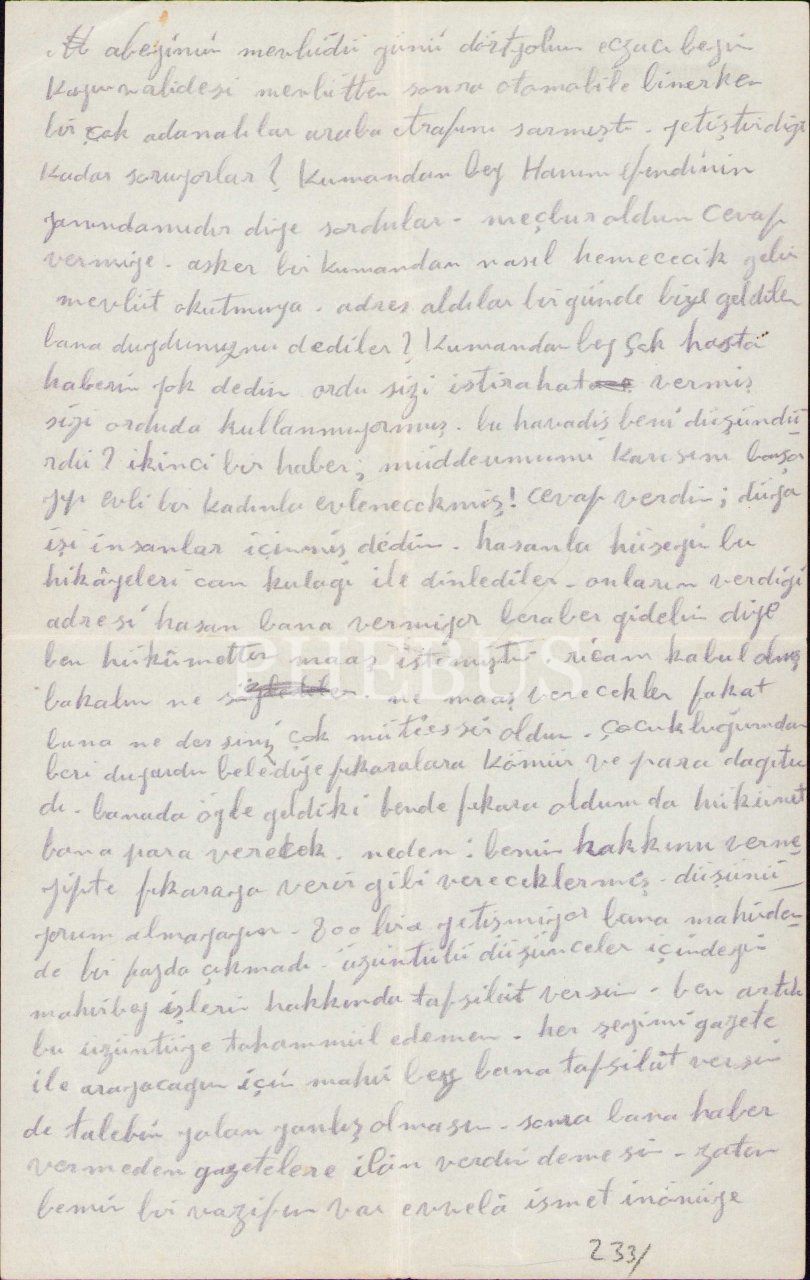 abeyinin mevlüdü günü dörtyolun eczacı beyin
Kayınvalidesi mevlütten sonra otomobile binerken
bir çok adanalılar araba etrafını sarmıştı. yetiştirdiği
kadar soruyorlar? Kumandan bey Hanım efendinin
yanındamıdır diye sordular. meçbur oldum cevap
vermiye. asker bir kumandan nasıl hemececik gelir
mevlüt okutmıya. adres aldılar bir günde bize geldiler
bana duydunuzmu dediler? Kumandan bey çok hasta
haberim yok dedim ordu sizi istirahata vermiş
sizi orduda kullanmıyormuş. bu havadis beni düşündü
rdü? ikinci bir haber; müddeumumi karısını boşa
yıp evli bir kadınla evlenecekmiş! cevap verdim; dünya
işi insanlar içinmiş dedim. hasanla hüseyin bu
hikâyeleri can kulağı ile dinlediler. onların verdiği
adresi hasan bana vermiyor beraber gidelim diye
ben hükûmetten maaş istemiştim ricam kabul olmuş
bakalım ne ne maaş verecekler fakat
buna ne dersiniz çok müteessir oldum. çocukluğumdan
beri duyardım belediye fıkaralara kömür ve para dağıtır
dı. banada öyle geldiki bende fıkara oldum da hükümet
bana para verecek. neden: benim hakkımı verme
yipte fıkaraya verir gibi vereceklermiş. düşünü
yorum almayayım. 300 lira yetişmiyor bana mahirden
de bir fayda çıkmadı. üzüntülü düşünceler içindeyim
mahir bey işlerin hakkında tafsilât versin. ben artık
bu üzüntüye tahammül edemem. her şeyimi gazete
ile arayacağım için mahir bey bana tafsilât versin
de talebim yalan yanlış olmasın. sonra bana haber
vermeden gazetelere ilân verdin demesin. zaten
benim bir vazifem var evvelâ ismet inönüye
233/
PHEBUS